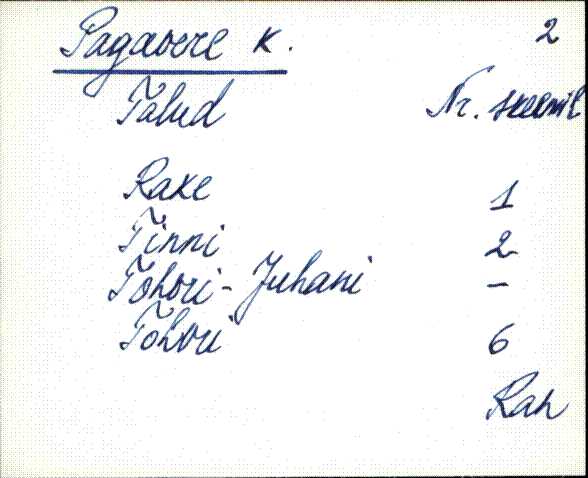 Pagavere k. 2
Talud Nr. skeemil
Rake 1
Tinni 2
Tohvri-Juhani -
Tohvri 6
Ran